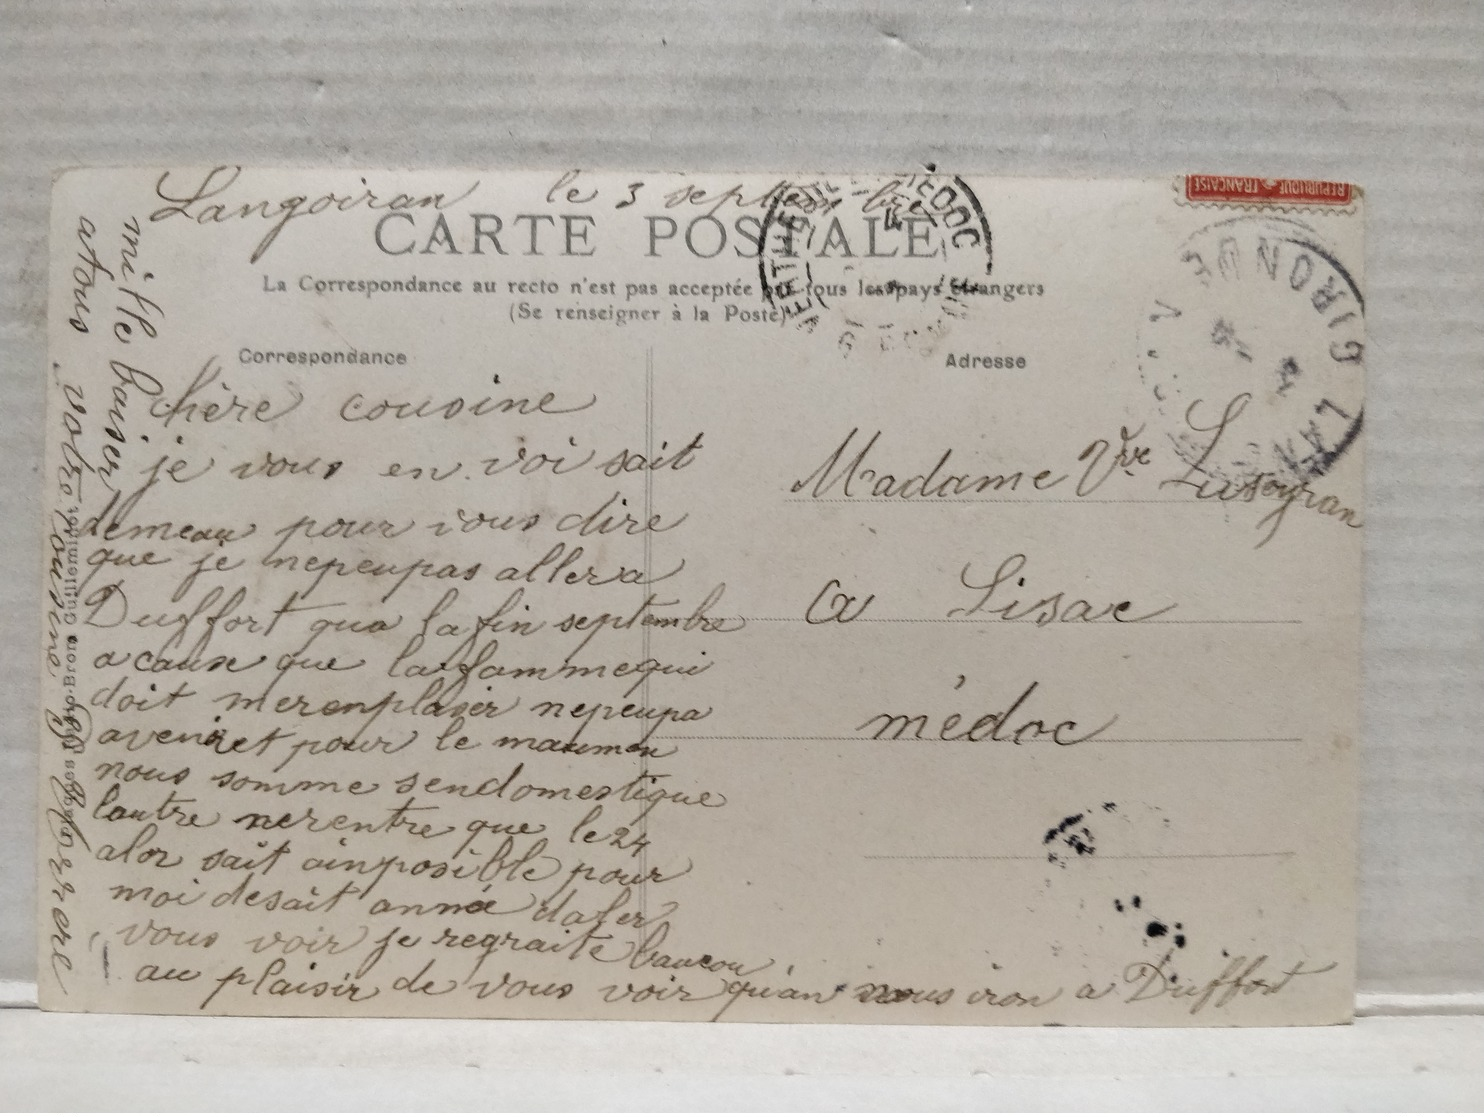 Langoiran le 3 septembre
CARTE POSTALE
La Correspondance au recto n'est pas acceptée par tous les pays étrangers
(Se renseigner à la Poste)
Correspondance
Adresse
RÉPUBLIQUE FRANÇAISE
GIRONDE
MEDOC
chère cousine
je vous en voi sait
demeau pour vous dire
que je nepeupas allera
Duffort qua la fin septembre
a cause que la fammequi
doit merenplasér nepeupa
aveniret pour le maumen
nous somme sendomestique
lautre nerentre que le 24
alor sait ainposible pour
moi desait année daler
vous voir je regraite baucou
au plaisir de vous voir quan nous iron a Duffort
mille baiser
atous votre
cousine
Madame Vve Luseyran
a Lisac
médoc